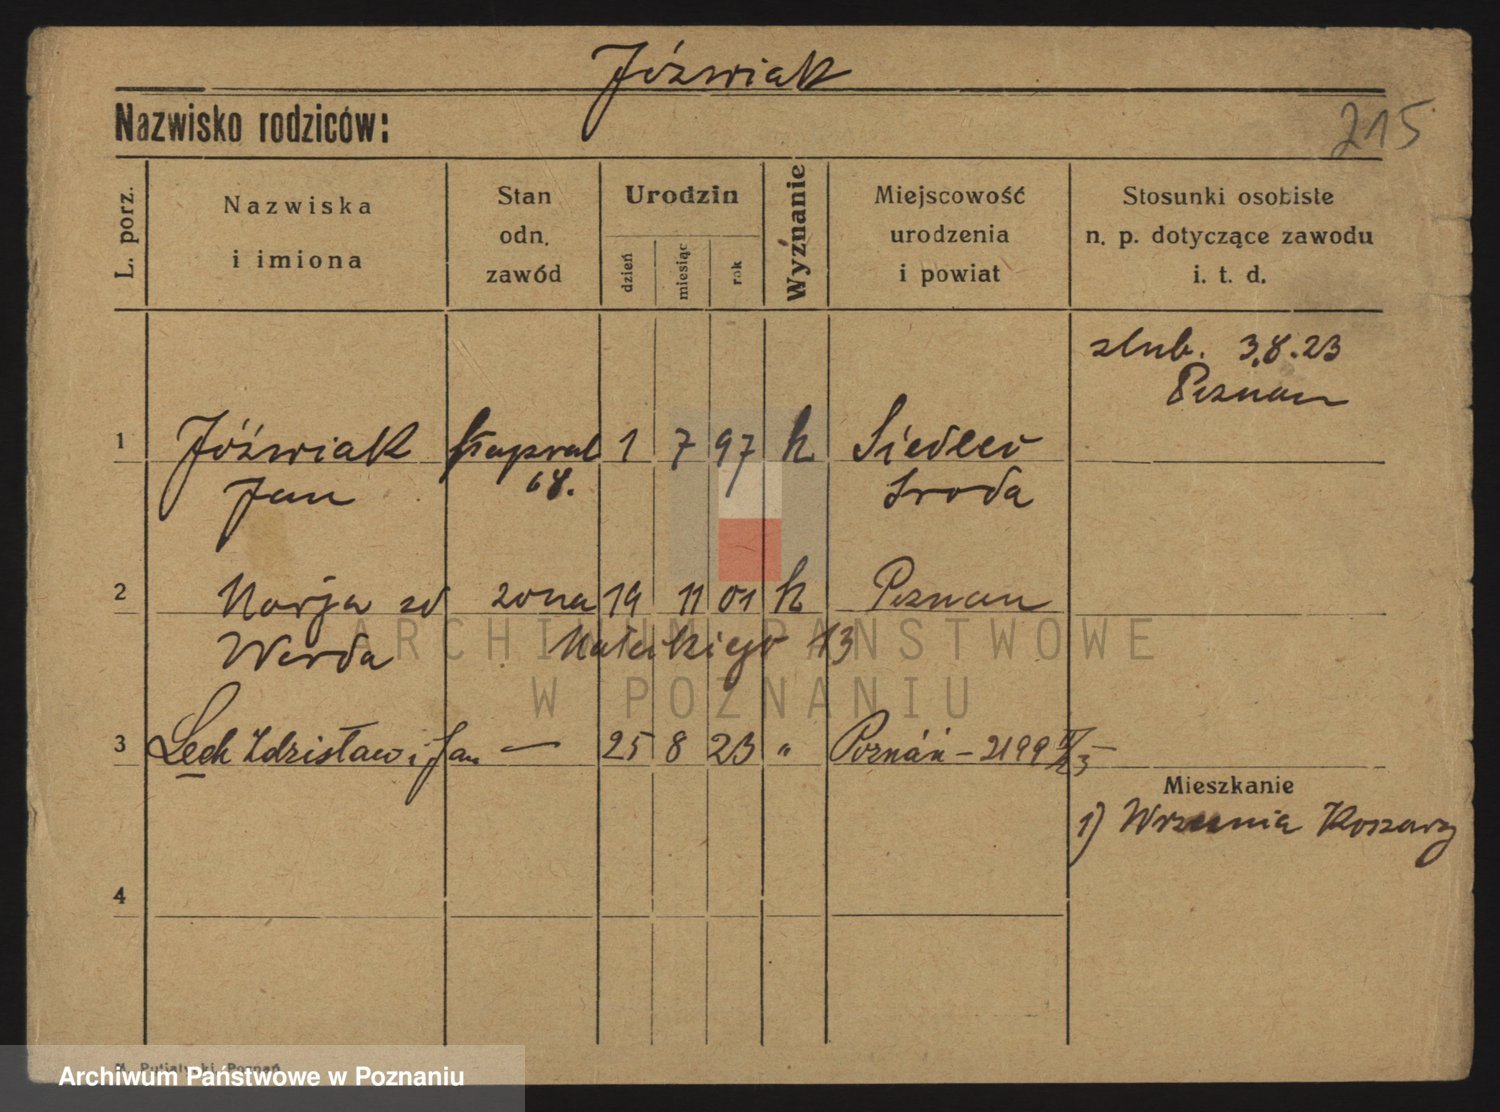 Jóźwiak
Nazwisko rodziców:
215
L. porz.
Nazwiska
i imiona
Stan
odn.
zawód
Urodzin
dzień
miesiąc
rok
Wyznanie
Miejscowość
urodzenia
i powiat
Stosunki osobiste
n. p. dotyczące zawodu
i. t. d.
zlub. 3.8.23
Poznan
1 Jóźwiak Kapral 1 7 97 k Siedlec
Jan 68. Sroda
2 Marja zd zona 19 11 01 k Poznan
Werda Małeckiego 13
3 Lech Zdzisław i Jan — 25 8 23 " Poznań - 2199
Mieszkanie
1) Wrzesnia Koszary
4
ARCHIWUM PAŃSTWOWE
W POZNANIU
Poznań
Archiwum Państwowe w Poznaniu